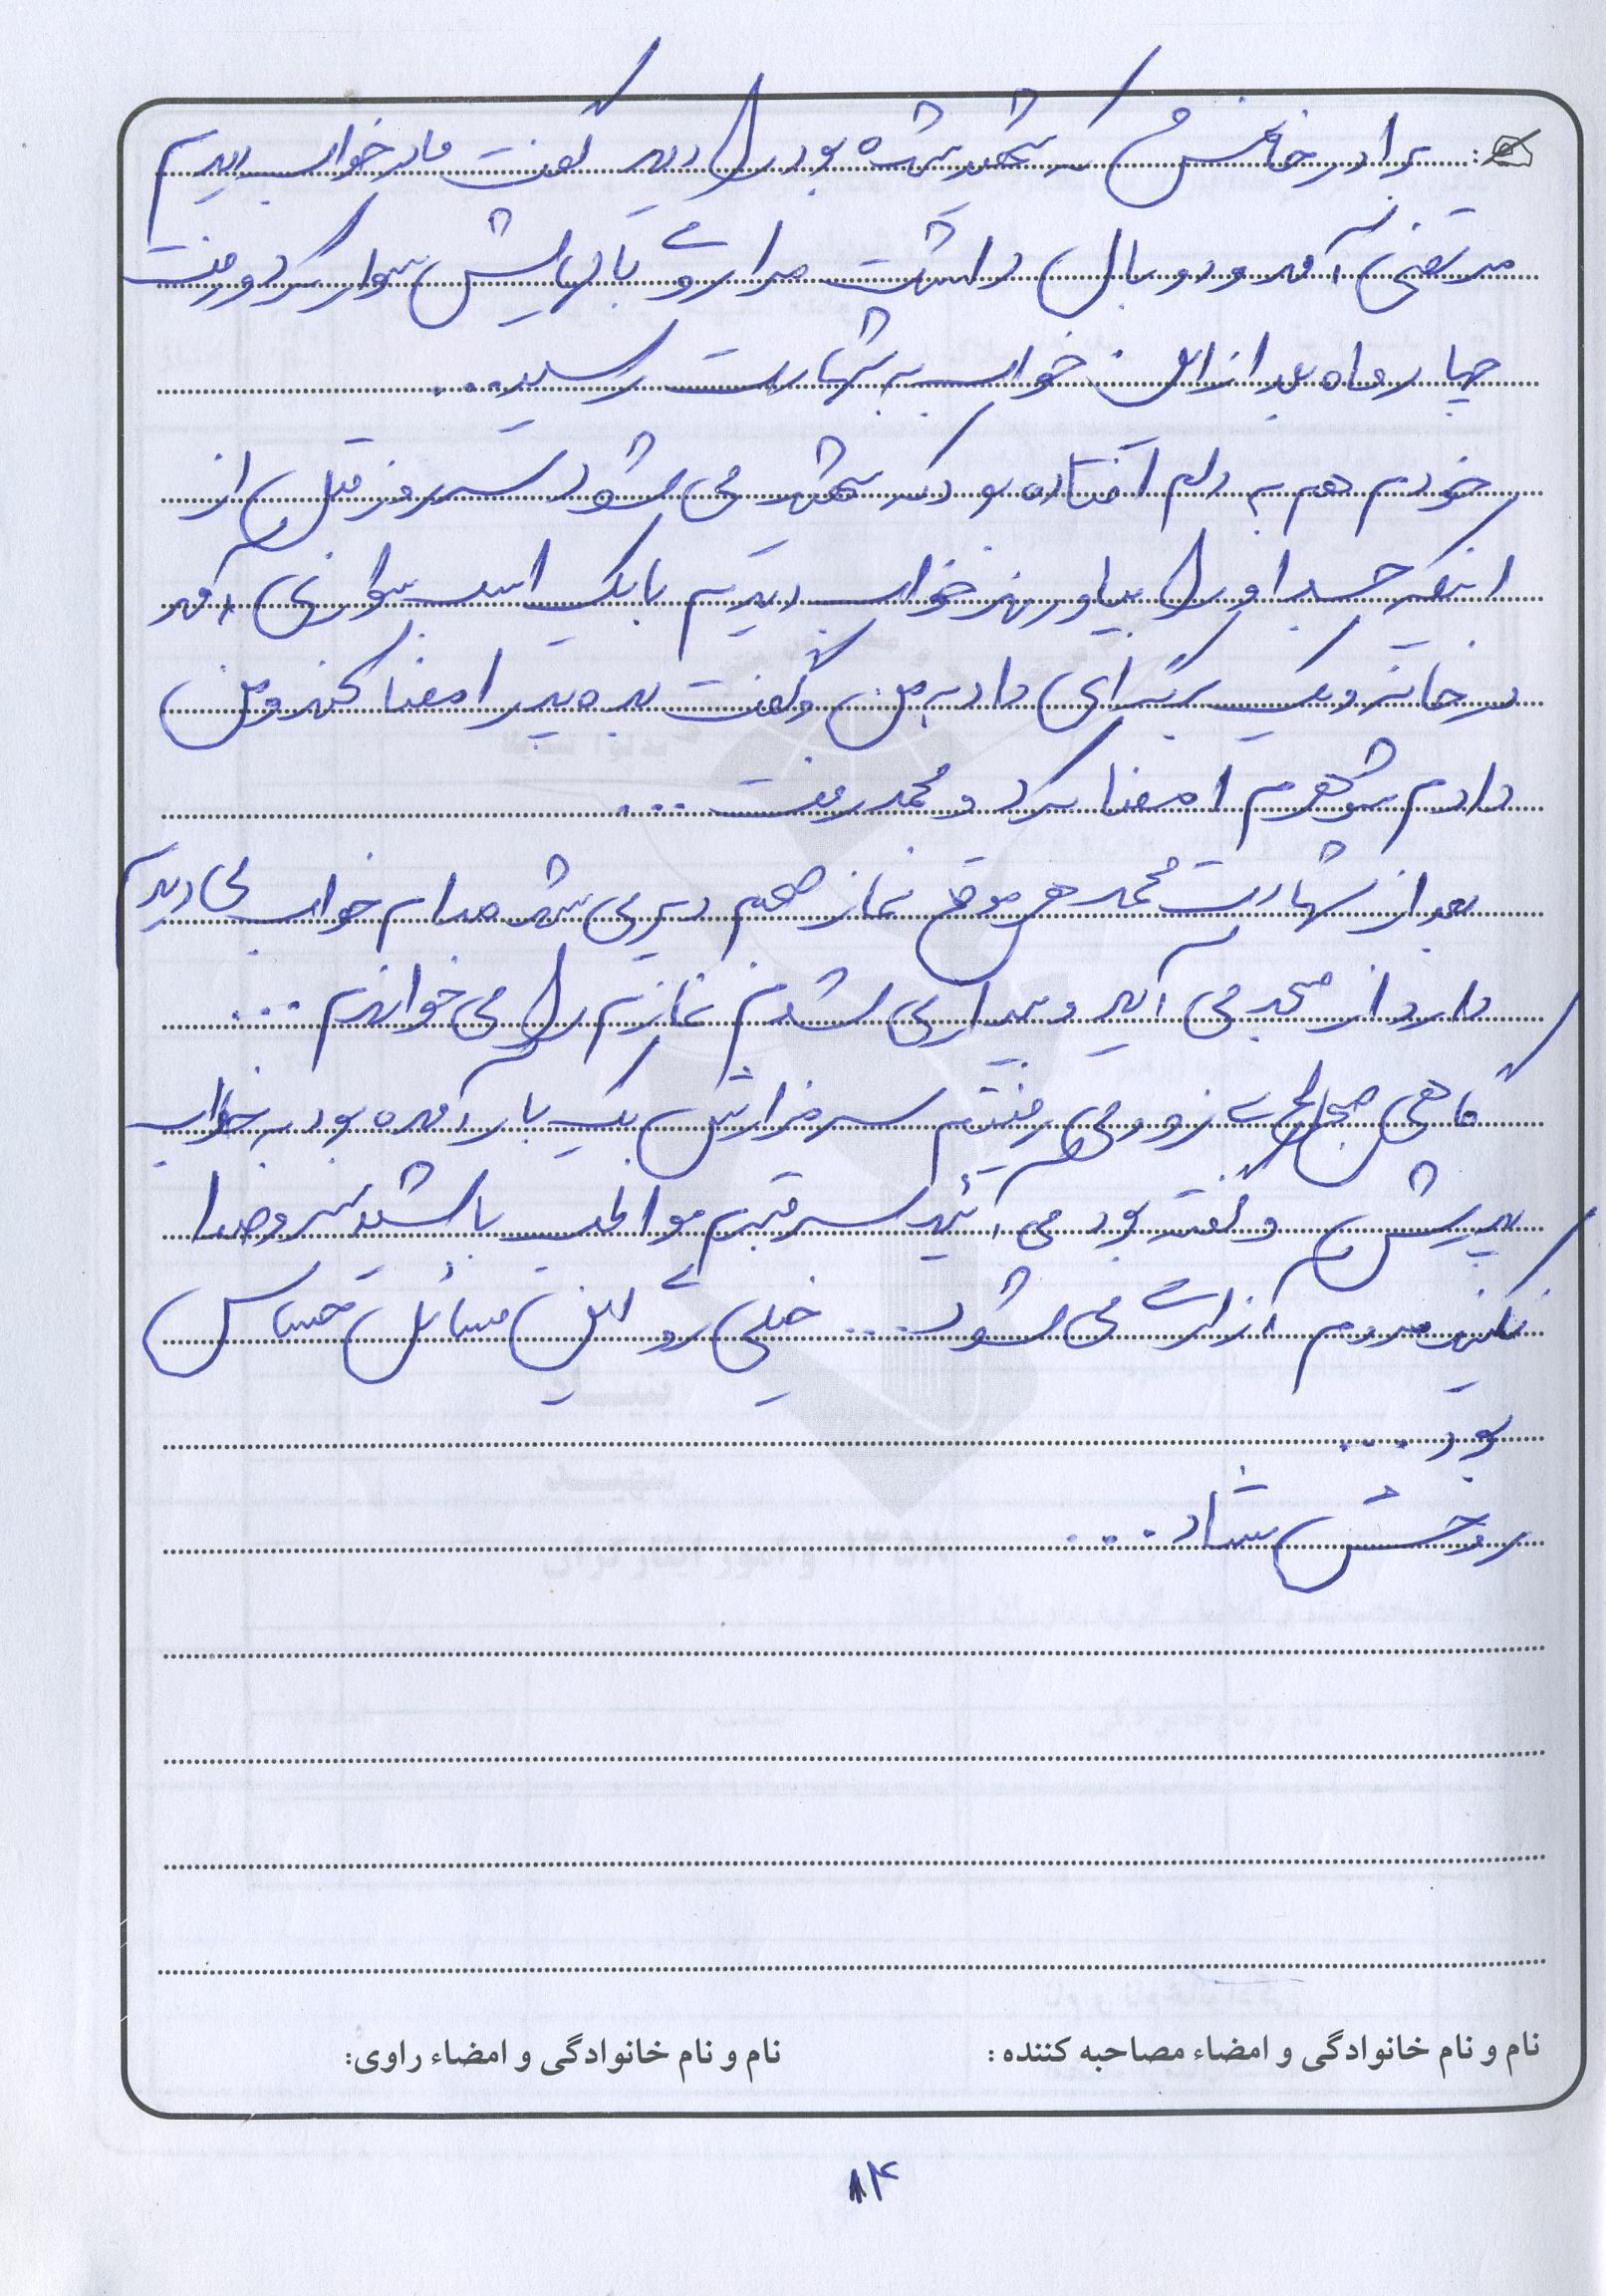 برادر خانمش که شهید شده بود را دید گفت مادر خواب دیدم
مرتضی آمد و دو بال داشت مرا روی بالهایش سوار کرد و رفت
چهار ماه بعد از این خواب به شهادت رسید...
خودم هم به دلم افتاده بود که شهید می شود سه روز قبل از
اینکه جسد او را بیاورند خواب دیدم با یک اسب سواری آمد
در خانه و یک برگه ای داد به من و گفت بده پدر امضا کند و من
دادم شوهرم امضا کرد و محمد رفت...
بعد از شهادت محمد هر موقع نماز صبحم دیر می شد مدام خواب می دیدم
دارد از مسجد می آید و بیدار می شدم نمازم را می خواندم...
گاهی صبح ها زود می رفتیم سر مزارش یک بار آمده بود به خواب
پدرش و گفته بود می آئید سر قبرم مواظب باشید سر و صدا
نکنید مردم آزاری می شود... خیلی روی این مسائل حساس
بود...
روحش شاد....
نام و نام خانوادگی و امضاء مصاحبه کننده: نام و نام خانوادگی و امضاء راوی:
۱۴